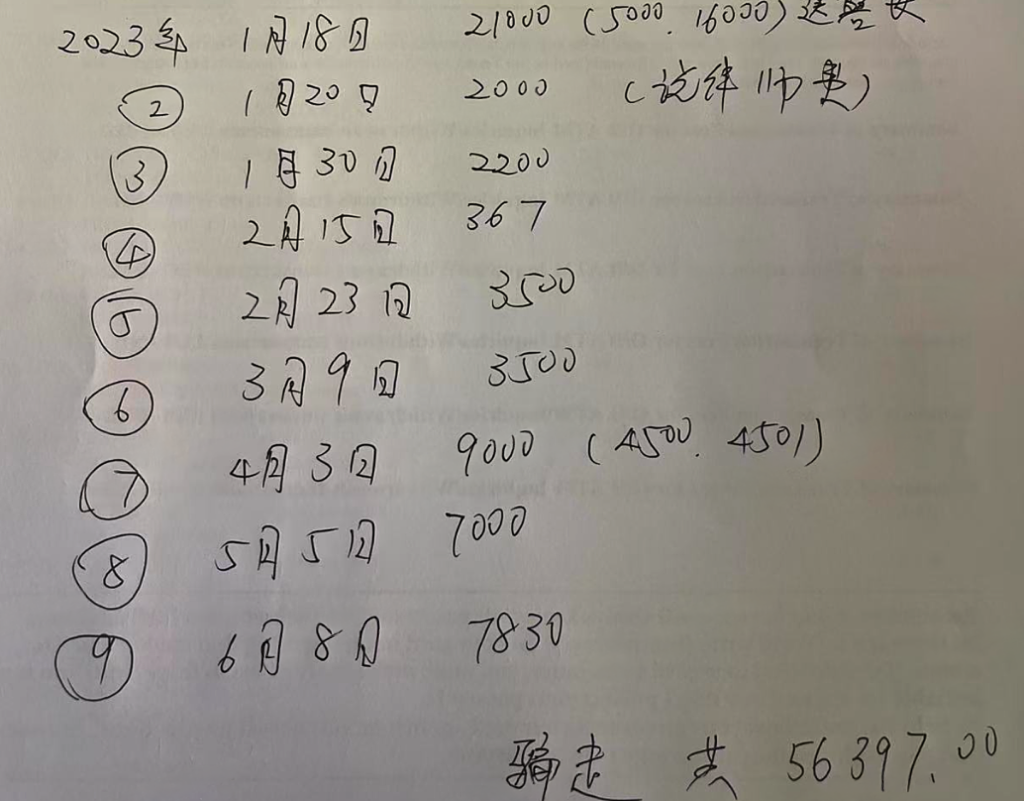 2023年 1月18日 21000 (5000. 16000) 送
② 1月20日 2000 (说律师费)
③ 1月30日 2200
④ 2月15日 367
⑤ 2月23日 3500
⑥ 3月9日 3500
⑦ 4月3日 9000 (4500. 4501)
⑧ 5月5日 7000
⑨ 6月8日 7830
骗走 共 56397.00